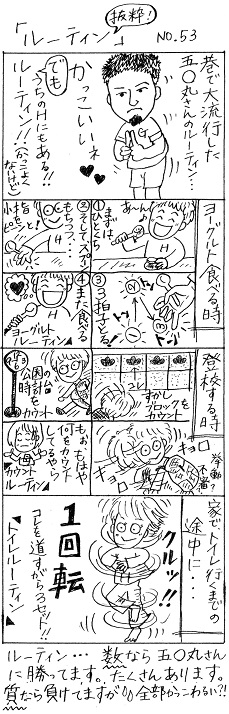 「ルーティン」
抜粋!
NO.53
巷で大流行した
五〇丸さんのルーティン…
かっこいいネ
でも
うちのHにもある!!
ルーティン!!
(かっこよく
ないけど)
ヨーグルト食べる時
①まずは
ひとくち
あ〜ん♪
②そしてスプーン
もちつつ…
小指を
ピーンと!
③3つ拍子とる!
④また食べる
ヨーグルト
ルーティン
登校する時
すかし
ブロックを
カウント
公園の台
時計も
カウント
もぉもはや
何をカウント
してるやら
カウント
ルーティン
キョロ
キョロ
挙動
不審?
家でトイレ行くまでの
途中に・・・
クルッ!!
1回転
コレを道すがら2セット!!
トイレルーティン
ルーティン…数なら五〇丸さん
に勝ってます。たくさんあります。
質なら負けてますが全部がこわるい?!